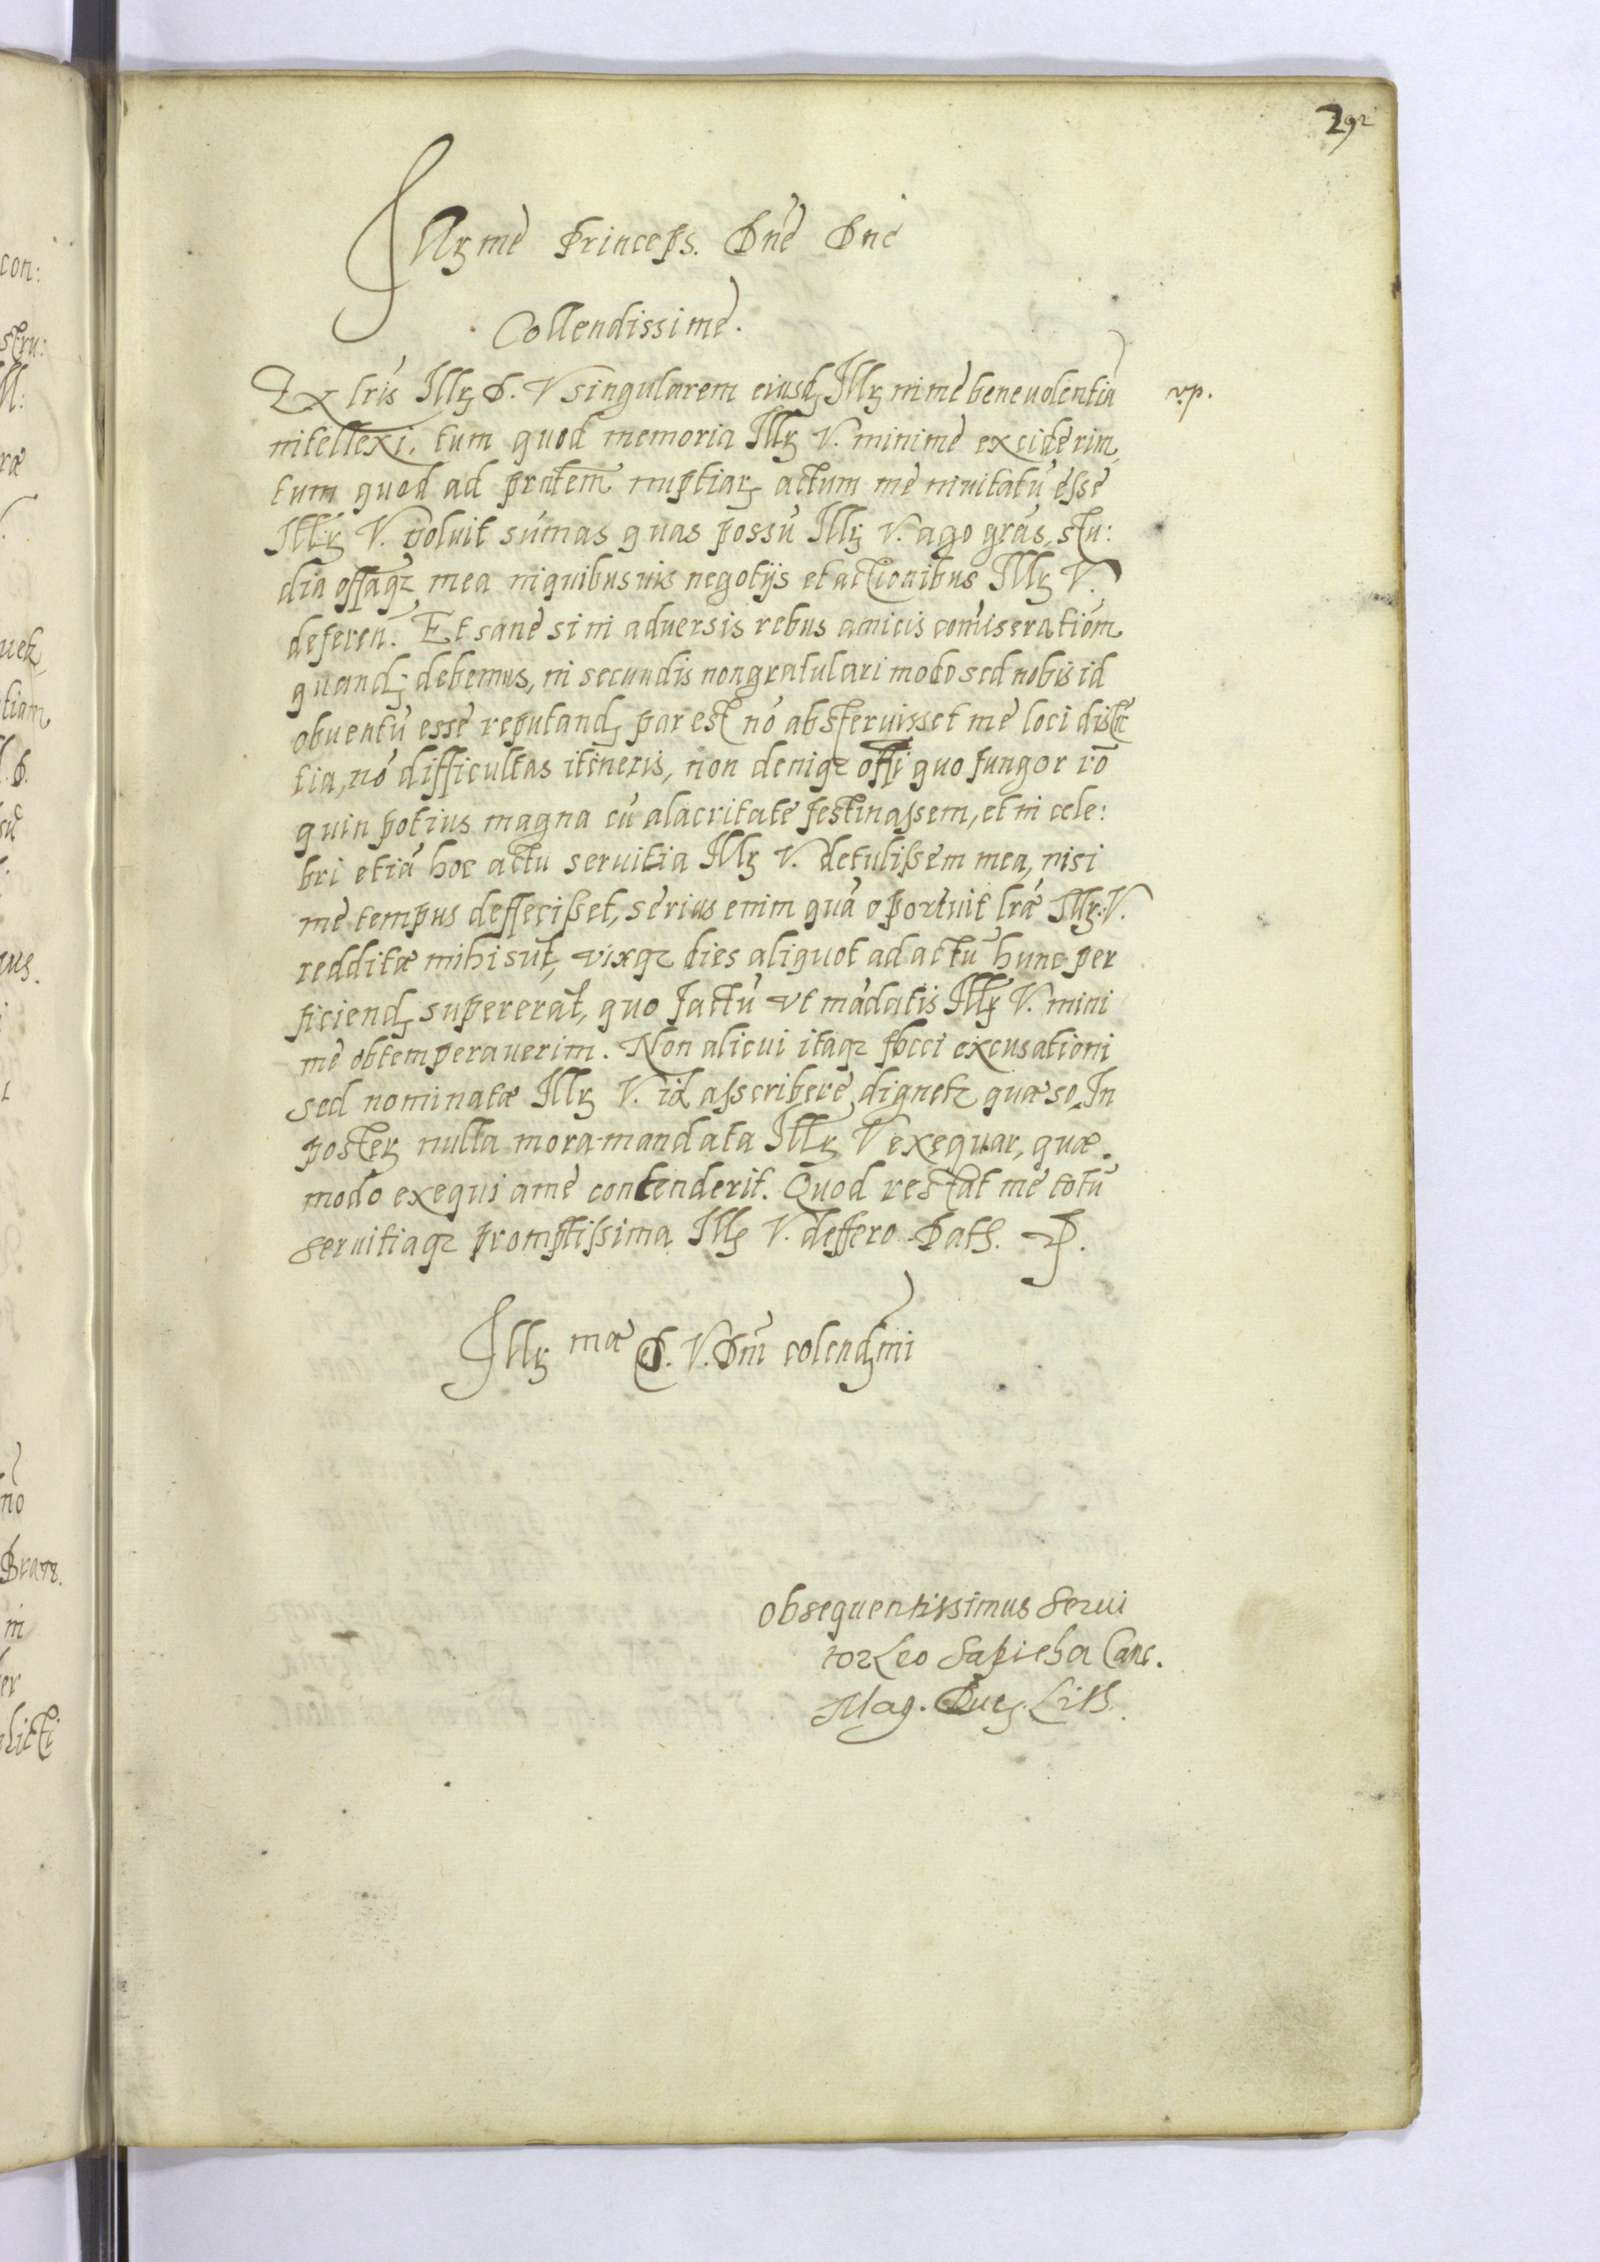 292
Illꝫme Princeps. Dn̄e Dn̄e
Collendissime.
Ex lr̄is Illꝫ D. V singularem eiusdꝫ Illꝫ in me beneuolentiā vp.
intellexi, tum quod memoria Illꝫ V. minime exciderim,
tum quod ad pn̄tem nuptiarꝫ actum me inuitatū esse
Illꝫ V. voluit sūmas quas possū Illꝫ V. ago grās, stu:
dia offaqꝫ mea in quibusuis negotijs et actionibus Illꝫ V.
deferen. Et sane si in aduersis rebus amicis com̄iserationem
quandꝫ debemus, in secundis non gratulari modo sed nobis id
obuentū esse reputandꝫ par est nō absteruisset me loci distā
tia, nō difficultas itineris, non deniqꝫ offi quo fungor rō
quin potius magna cū alacritate festinassem, et in cele:
bri etiā hoc actu seruitia Illꝫ V. detulissem mea, nisi
me tempus deffecisset, serius enim quā oportuit lrǣ Illꝫ: V.
redditæ mihi sūt, vixqꝫ dies aliquot ad actū hunc per
ficiendꝫ supererāt, quo factū vt mādatis Illꝫ V. mini
me obtemperauerim. Non alicui itaqꝫ excusationi
sed nominatæ Illꝫ V. id asscribere dignetꝫ quæso, In
posterꝫ nulla mora mandata Illꝫ V exequar, quæ
modo exequi a me contenderit. Quod restat me totū
seruitiaqꝫ promptissima Illꝫ V. deffero Dat
Illꝫ mæ D. V. Dn̄i colendꝫmi
Obsequentissimus Serui
tor Leo Sapieha Canc.
Mag. Ducꝫ. Lith.
con:
ræ
uetꝫ
tiam
no
in
er
licti